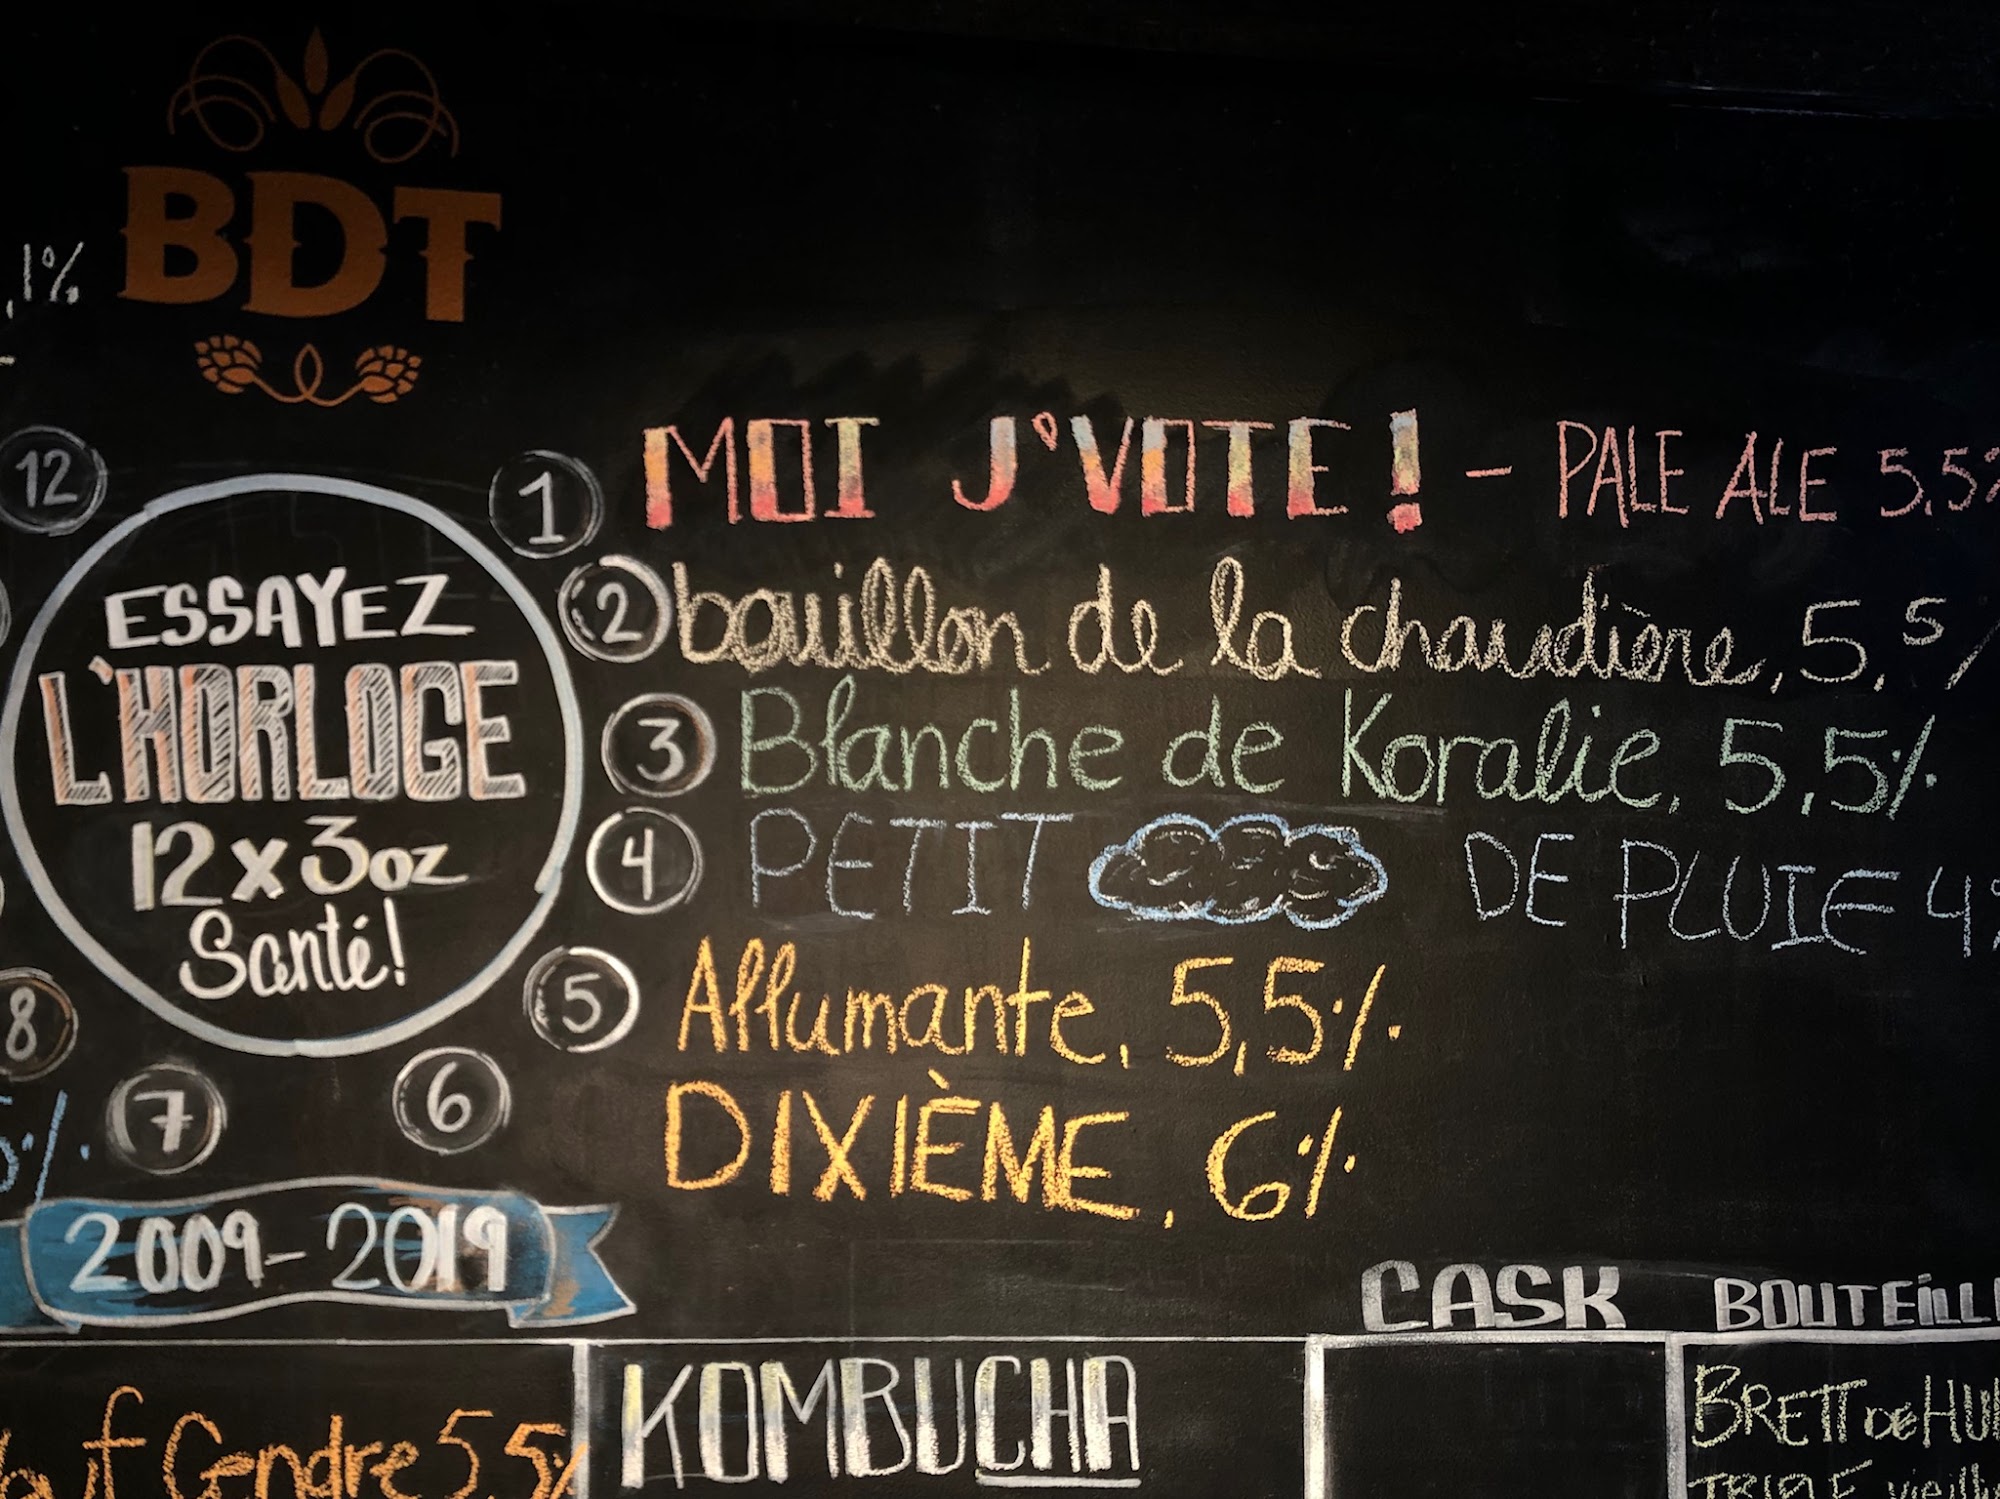 BDT
,1%
12
1 MOI J'VOTE! - PALE ALE 5,5%
2 bouillon de la chaudière, 5,5%
3 Blanche de Koralie, 5,5%
4 PETIT DE PLUIE 4%
5 Allumante, 5,5%
6 DIXIÈME, 6%
7
8
ESSAYEZ
L'HORLOGE
12 x 3oz
Santé!
5%
2009-2019
Gendre 5,5%
KOMBUCHA
CASK
BOUTEILL
BRETT DE
TRIPLE